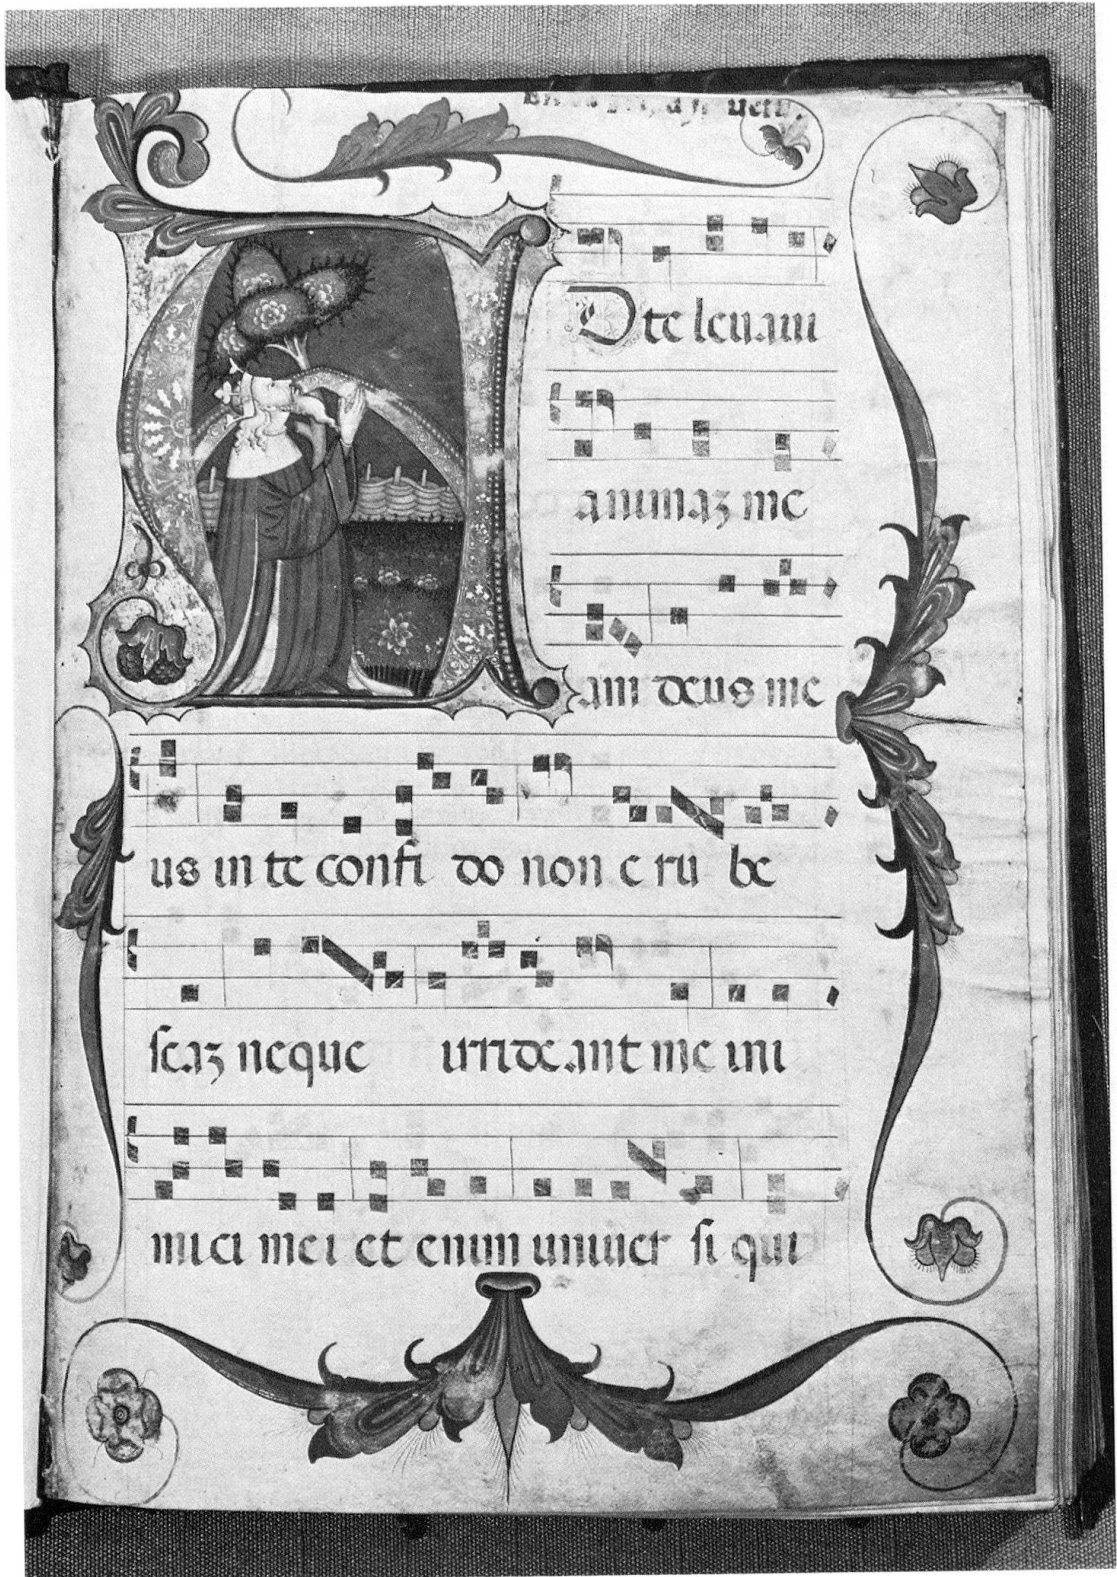 A
D te leuaui
animaz me
am deus me
us in te confi do non e ru be
scaz neque irrideant me ini
mici mei et enim uniuer si qui